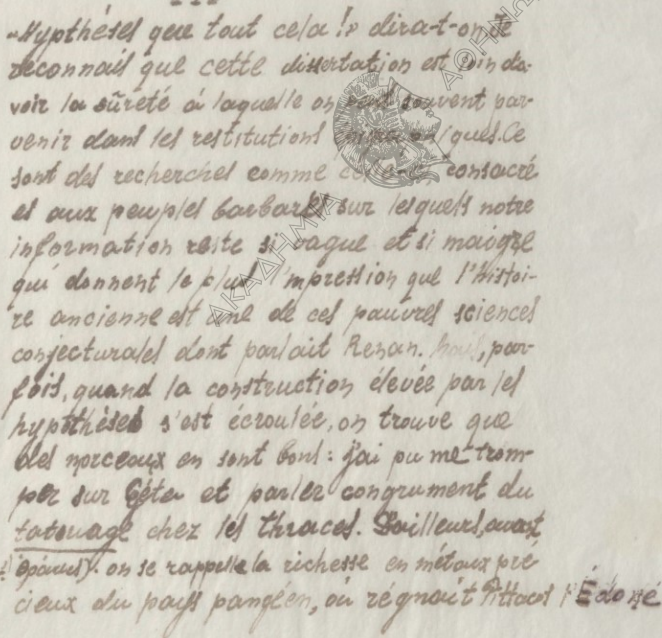 "Hypthéses que tout cela!" dira-t-on Je
reconnais que cette dissertation est loin d'a-
voir la sûreté á laquelle on peut souvent par-
venir dans les restitutions Ce
sont des recherches comme consacré
es aux peuples barbares sur lesquels notre
information reste si vague et si maigre
qui donnent le plus l'impression que l'histoi-
re ancienne est une de ces pauvres sciences
conjecturales dont parlait Renan. Mais, par-
fois, quand la construction élevée par les
hypthéses s'est écroulée, on trouve que
des morceaux en sont bons: j'ai pu me trom-
per sur Géta et parler congrument du
tatouage chez les thraces. D'ailleurs, avant
épaves). on se rappelle la richesse en métaux pré
cieux du pays pangéen, où régnait Pittacos l'Édoné
ΑΚΑΔΗΜΙΑ
ΑΘΗΝΩΝ